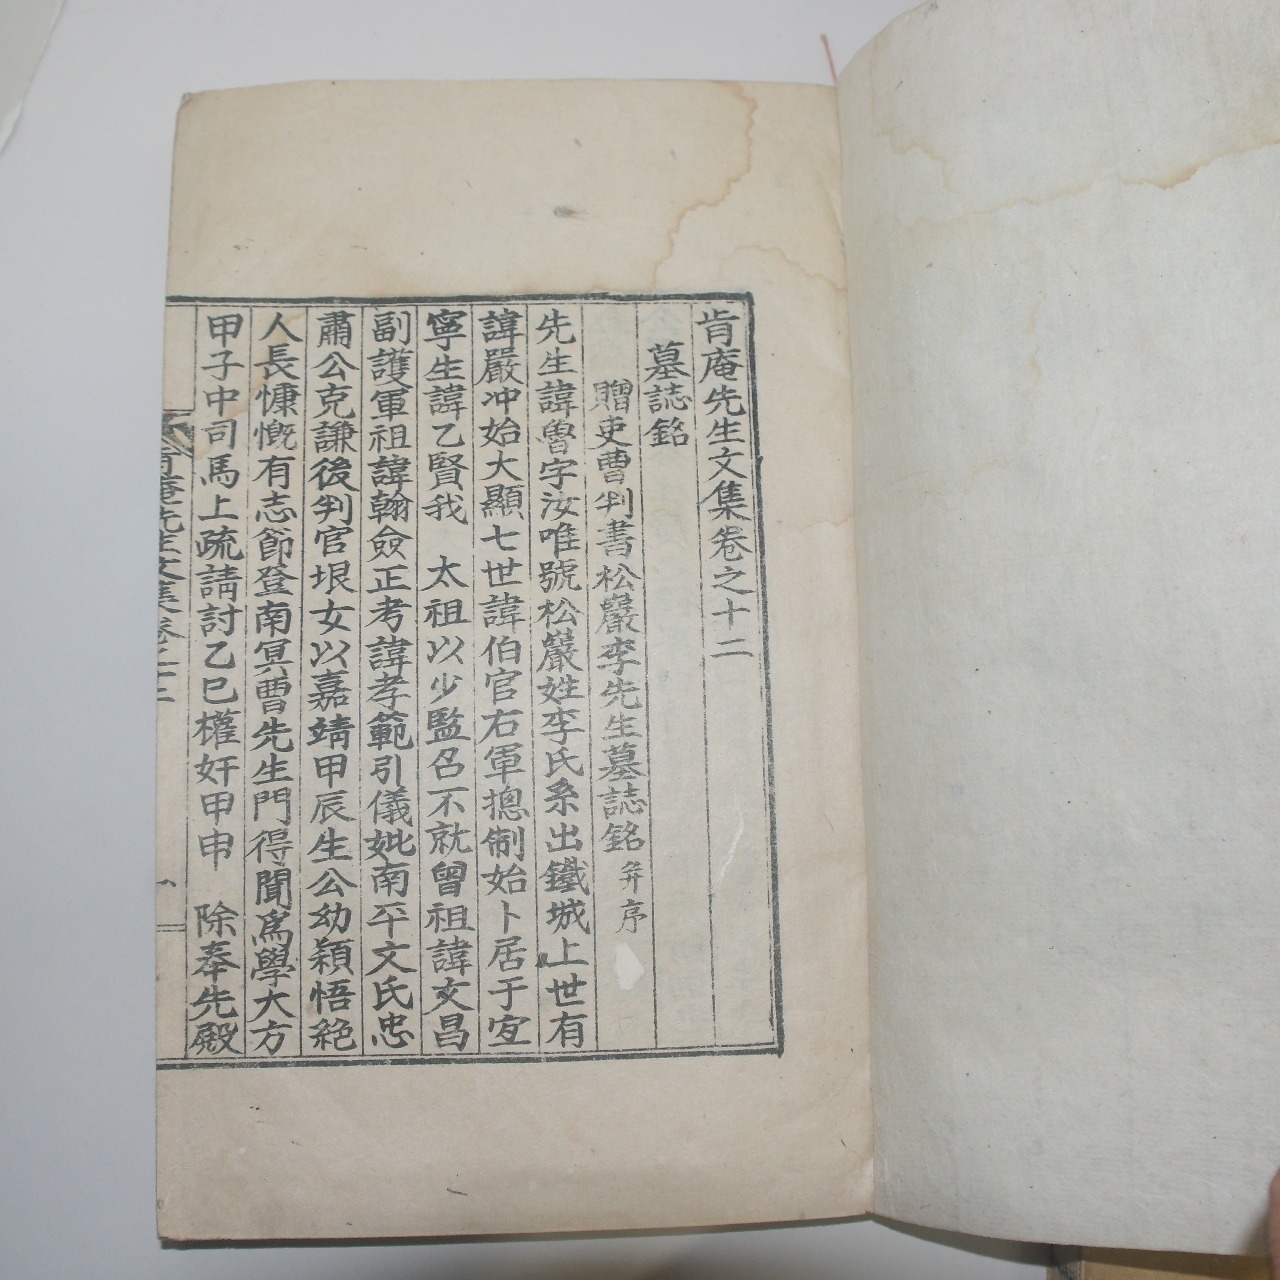 肯庵先生文集卷之十二
墓誌銘
贈吏曹判書松巖李先生墓誌銘 幷序
先生諱魯字汝唯號松巖姓李氏系出鐵城上世有
諱嚴冲始大顯七世諱伯官右軍摠制始卜居于宜
寧生諱乙賢我 太祖以少監召不就曾祖諱文昌
副護軍祖諱翰僉正考諱孝範引儀妣南平文氏忠
肅公克謙後判官垠女以嘉靖甲辰生公幼穎悟絶
人長慷慨有志節登南冥曹先生門得聞爲學大方
甲子中司馬上疏請討乙巳權奸甲申 除奉先殿
肯庵先生文集卷之十二
一